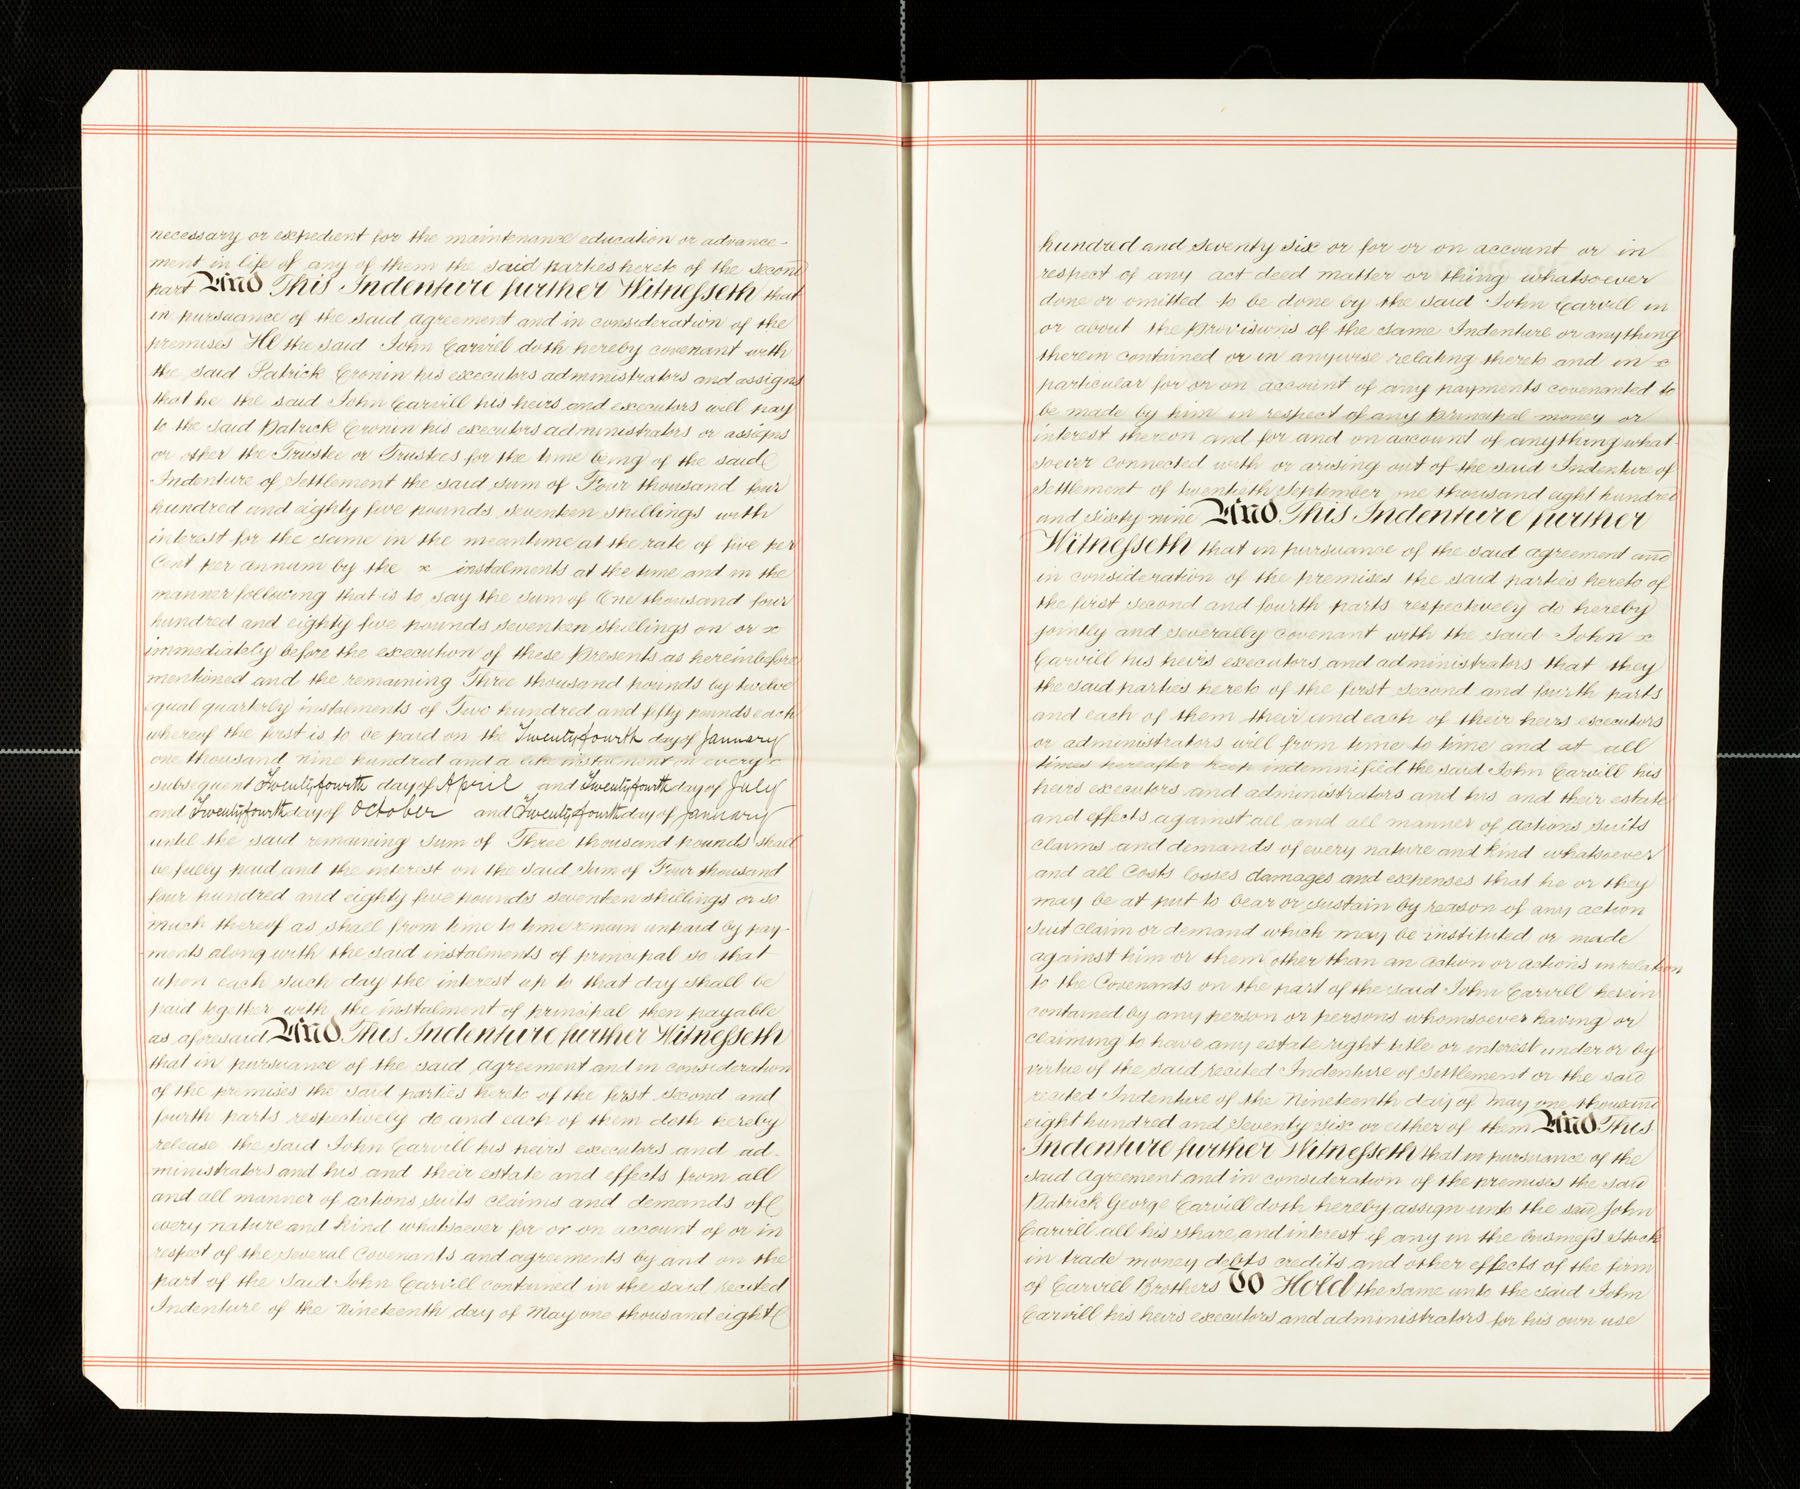 necessary or expedient for the maintenance education or advance-
ment in life of any of them the said parties hereto of the second
part And This Indenture further Witnesseth that
in pursuance of the said agreement and in consideration of the
premises He the said John Carvill doth hereby covenant with
the said Patrick Cronin his executors administrators and assigns
that he the said John Carvill his heirs and executors will pay
to the said Patrick Cronin his executors administrators or assigns
or other the Trustee or Trustees for the time being of the said
Indenture of Settlement the said sum of Four thousand four
hundred and eighty five pounds seventeen shillings with
interest for the same in the meantime at the rate of five per
Cent per annum by the x instalments at the time and in the
manner following that is to say the sum of One thousand four
hundred and eighty five pounds seventeen shillings on or x
immediately before the execution of these Presents as hereinbefore
mentioned and the remaining Three thousand pounds by twelve
equal quarterly instalments of Two hundred and fifty pounds each
whereof the first is to be paid on the Twentyfourth day of January
one thousand nine hundred and a like instalment on every
subsequent Twentyfourth day of April and Twentyfourth day of July
and Twentyfourth day of October and Twentyfourth day of January
until the said remaining sum of Three thousand pounds shall
be fully paid and the interest on the said Sum of Four thousand
four hundred and eighty five pounds seventeen shillings or so
much thereof as shall from time to time remain unpaid by pay-
ments along with the said instalments of principal so that
upon each such day the interest up to that day shall be
paid together with the instalment of principal then payable
as aforesaid And This Indenture further Witnesseth
that in pursuance of the said agreement and in consideration
of the premises the said parties hereto of the first second and
fourth parts respectively do and each of them doth hereby
release the said John Carvill his heirs executors and ad-
ministrators and his and their estate and effects from all
and all manner of actions suits claims and demands of
every nature and kind whatsoever for or on account of or in
respect of the several Covenants and agreements by and on the
part of the said John Carvill contained in the said recited
Indenture of the Nineteenth day of May one thousand eight
hundred and Seventy Six or for or on account or in
respect of any act deed matter or thing whatsoever
done or omitted to be done by the said John Carvill in
or about the provisions of the same Indenture or anything
therein contained or in anywise relating thereto and in x
particular for or on account of any payments covenanted to
be made by him in respect of any principal money or
interest thereon and for and on account of anything what
soever connected with or arising out of the said Indenture of
Settlement of twentieth September one thousand eight hundred
and sixty nine And This Indenture further
Witnesseth that in pursuance of the said agreement and
in consideration of the premises the said parties hereto of
the first second and fourth parts respectively do hereby
jointly and severally covenant with the said John x
Carvill his heirs executors and administrators that they
the said parties hereto of the first second and fourth parts
and each of them their and each of their heirs executors
or administrators will from time to time and at all
times hereafter keep indemnified the said John Carvill his
heirs executors and administrators and his and their estate
and effects against all and all manner of actions suits
claims and demands of every nature and kind whatsoever
and all Costs losses damages and expenses that he or they
may be at put to bear or sustain by reason of any action
suit claim or demand which may be instituted or made
against him or them other than an action or actions in relation
to the Covenants on the part of the said John Carvill herein
contained by any person or persons whomsoever having or
claiming to have any estate right title or interest under or by
virtue of the said recited Indenture of Settlement or the said
recited Indenture of the Nineteenth day of May one thousand
eight hundred and Seventy six or either of them And This
Indenture further Witnesseth that in pursuance of the
said Agreement and in consideration of the premises the said
Patrick George Carvill doth hereby assign unto the said John
Carvill all his share and interest if any in the business Stock
in trade money debts credits and other effects of the firm
of Carvill Brothers To Hold the same unto the said John
Carvill his heirs executors and administrators for his own use